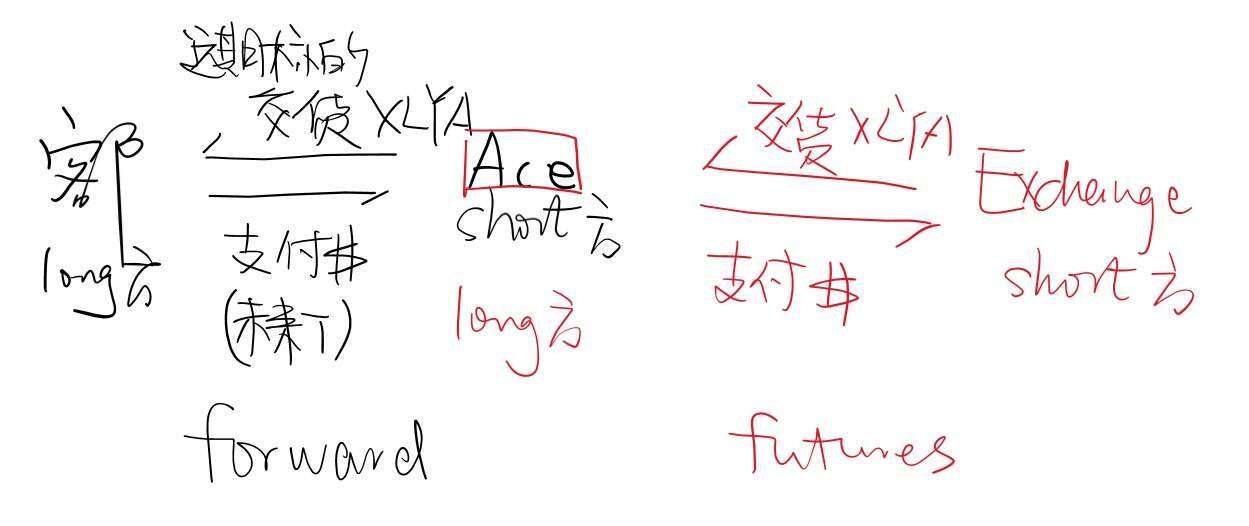 交货 XLYA
客户
Ace
short方
long方
支付$
(未来T)
long方
forward
交货 XLYA
Exchange
支付$
short方
futures